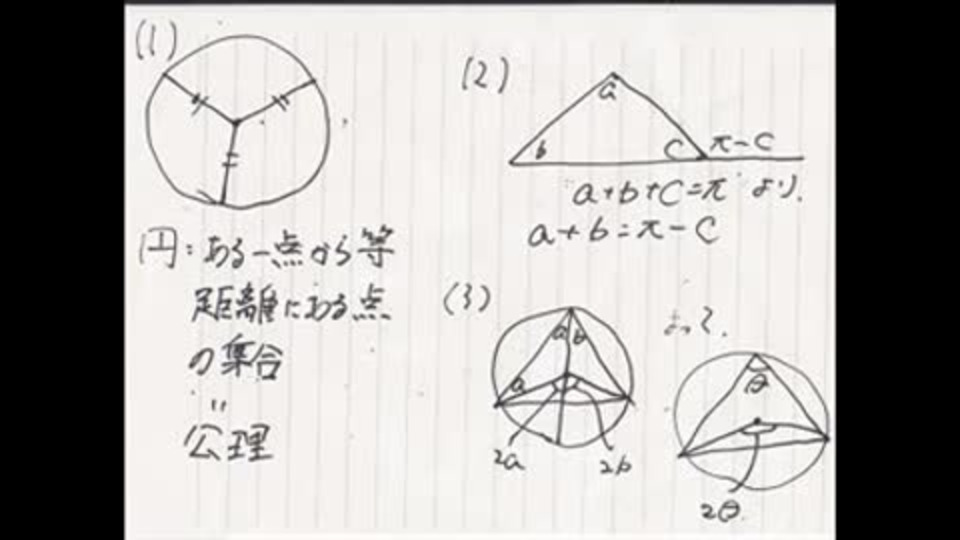 (1)
円:ある一点から等
距離にある点
の集合
〃
公理
(2)
a
b
C
π-C
a+b+C=π より.
a+b=π-C
(3)
a
b
a
2a
2b
よって.
θ
2θ.